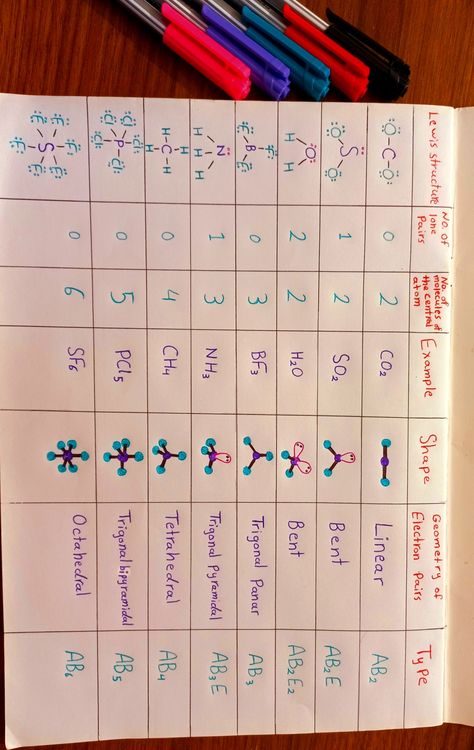 Lewis structure
No. of lone pairs
No. of molecules of the central atom
Example
Shape
Geometry of Electron Pairs
Type
O-C-O
0
2
CO2
Linear
AB2
S
O O
1
2
SO2
Bent
AB2E
O
H H
2
2
H2O
Bent
AB2E2
F F
B
F
0
3
BF3
Trigonal Panar
AB3
N
H H H
1
3
NH3
Trigonal Pyramidal
AB3E
H
H-C-H
H
0
4
CH4
Tetrahedral
AB4
Cl Cl
Cl P Cl
Cl
0
5
PCl5
Trigonal bipyramidal
AB5
F F F
S
F F F
0
6
SF6
Octahedral
AB6